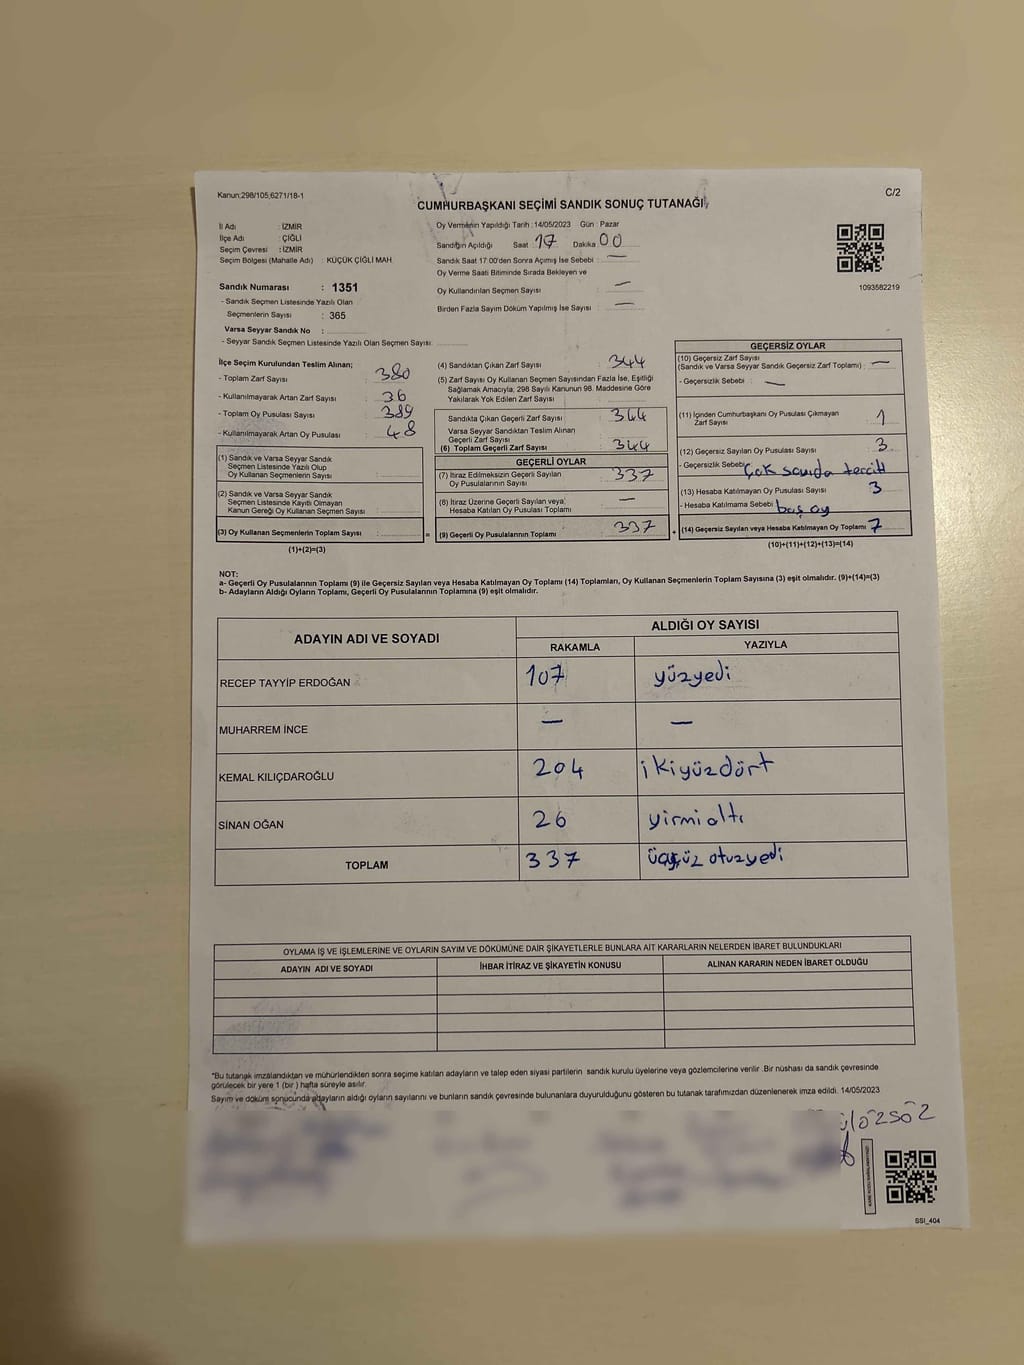 Kanun:298/105,6271/18-1
C/2
CUMHURBAŞKANI SEÇİMİ SANDIK SONUÇ TUTANAĞI
İl Adı : İZMİR
İlçe Adı : ÇİĞLİ
Seçim Çevresi : İZMİR
Seçim Bölgesi (Mahalle Adı) : KÜÇÜK ÇİĞLİ MAH
Sandık Numarası : 1351
- Sandık Seçmen Listesinde Yazılı Olan
Seçmenlerin Sayısı : 365
Varsa Seyyar Sandık No :
- Seyyar Sandık Seçmen Listesinde Yazılı Olan Seçmen Sayısı:
Oy Vermenin Yapıldığı Tarih : 14/05/2023 Gün : Pazar
Sandığın Açıldığı Saat 17 Dakika 00
Sandık Saat 17:00'den Sonra Açımış İse Sebebi : —
Oy Verme Saati Bitiminde Sırada Bekleyen ve
Oy Kullandırılan Seçmen Sayısı : —
Birden Fazla Sayım Döküm Yapılmış İse Sayısı : —
1093582219
İlçe Seçim Kurulundan Teslim Alınan;
- Toplam Zarf Sayısı : 380
- Kullanılmayarak Artan Zarf Sayısı : 36
- Toplam Oy Pusulası Sayısı : 389
- Kullanılmayarak Artan Oy Pusulası : 48
(1) Sandık ve Varsa Seyyar Sandık
Seçmen Listesinde Yazılı Olup
Oy Kullanan Seçmenlerin Sayısı :
(2) Sandık ve Varsa Seyyar Sandık
Seçmen Listesinde Kayıtlı Olmayan
Kanun Gereği Oy Kullanan Seçmen Sayısı :
(3) Oy Kullanan Seçmenlerin Toplam Sayısı :
(1)+(2)=(3)
(4) Sandıktan Çıkan Zarf Sayısı : 344
(5) Zarf Sayısı Oy Kullanan Seçmen Sayısından Fazla İse, Eşitliği
Sağlamak Amacıyla, 298 Sayılı Kanunun 98. Maddesine Göre
Yakılarak Yok Edilen Zarf Sayısı :
Sandıkta Çıkan Geçerli Zarf Sayısı : 344
Varsa Seyyar Sandıktan Teslim Alınan
Geçerli Zarf Sayısı :
(6) Toplam Geçerli Zarf Sayısı : 344
GEÇERLİ OYLAR
(7) İtiraz Edilmeksizin Geçerli Sayılan
Oy Pusulalarının Sayısı : 337
(8) İtiraz Üzerine Geçerli Sayılan veya
Hesaba Katılan Oy Pusulası Toplamı : —
= (9) Geçerli Oy Pusulalarının Toplamı : 337
GEÇERSİZ OYLAR
(10) Geçersiz Zarf Sayısı
(Sandık ve Varsa Seyyar Sandık Geçersiz Zarf Toplamı) : —
- Geçersizlik Sebebi : —
(11) İçinden Cumhurbaşkanı Oy Pusulası Çıkmayan
Zarf Sayısı : 1
(12) Geçersiz Sayılan Oy Pusulası Sayısı : 3
- Geçersizlik Sebebi : Çok sayıda tercih
(13) Hesaba Katılmayan Oy Pusulası Sayısı : 3
- Hesaba Katılmama Sebebi : boş oy
+ (14) Geçersiz Sayılan veya Hesaba Katılmayan Oy Toplamı : 7
(10)+(11)+(12)+(13)=(14)
NOT:
a- Geçerli Oy Pusulalarının Toplamı (9) ile Geçersiz Sayılan veya Hesaba Katılmayan Oy Toplamı (14) Toplamları, Oy Kullanan Seçmenlerin Toplam Sayısına (3) eşit olmalıdır. (9)+(14)=(3)
b- Adayların Aldığı Oyların Toplamı, Geçerli Oy Pusulalarının Toplamına (9) eşit olmalıdır.
ADAYIN ADI VE SOYADI
ALDIĞI OY SAYISI
RAKAMLA YAZIYLA
RECEP TAYYİP ERDOĞAN 107 yüzyedi
MUHARREM İNCE — —
KEMAL KILIÇDAROĞLU 204 ikiyüzdört
SİNAN OĞAN 26 yirmialtı
TOPLAM 337 üçyüz otuzyedi
OYLAMA İŞ VE İŞLEMLERİNE VE OYLARIN SAYIM VE DÖKÜMÜNE DAİR ŞİKAYETLERLE BUNLARA AİT KARARLARIN NELERDEN İBARET BULUNDUKLARI
ADAYIN ADI VE SOYADI İHBAR İTİRAZ VE ŞİKAYETİN KONUSU ALINAN KARARIN NEDEN İBARET OLDUĞU
*Bu tutanak imzalandıktan ve mühürlendikten sonra seçime katılan adayların ve talep eden siyasi partilerin sandık kurulu üyelerine veya gözlemcilerine verilir .Bir nüshası da sandık çevresinde
görülecek bir yere 1 (bir ) hafta süreyle asılır.
Sayım ve döküm sonucunda adayların aldığı oyların sayılarını ve bunların sandık çevresinde bulunanlara duyurulduğunu gösteren bu tutanak tarafımızdan düzenlenerek imza edildi. 14/05/2023
SSI_404